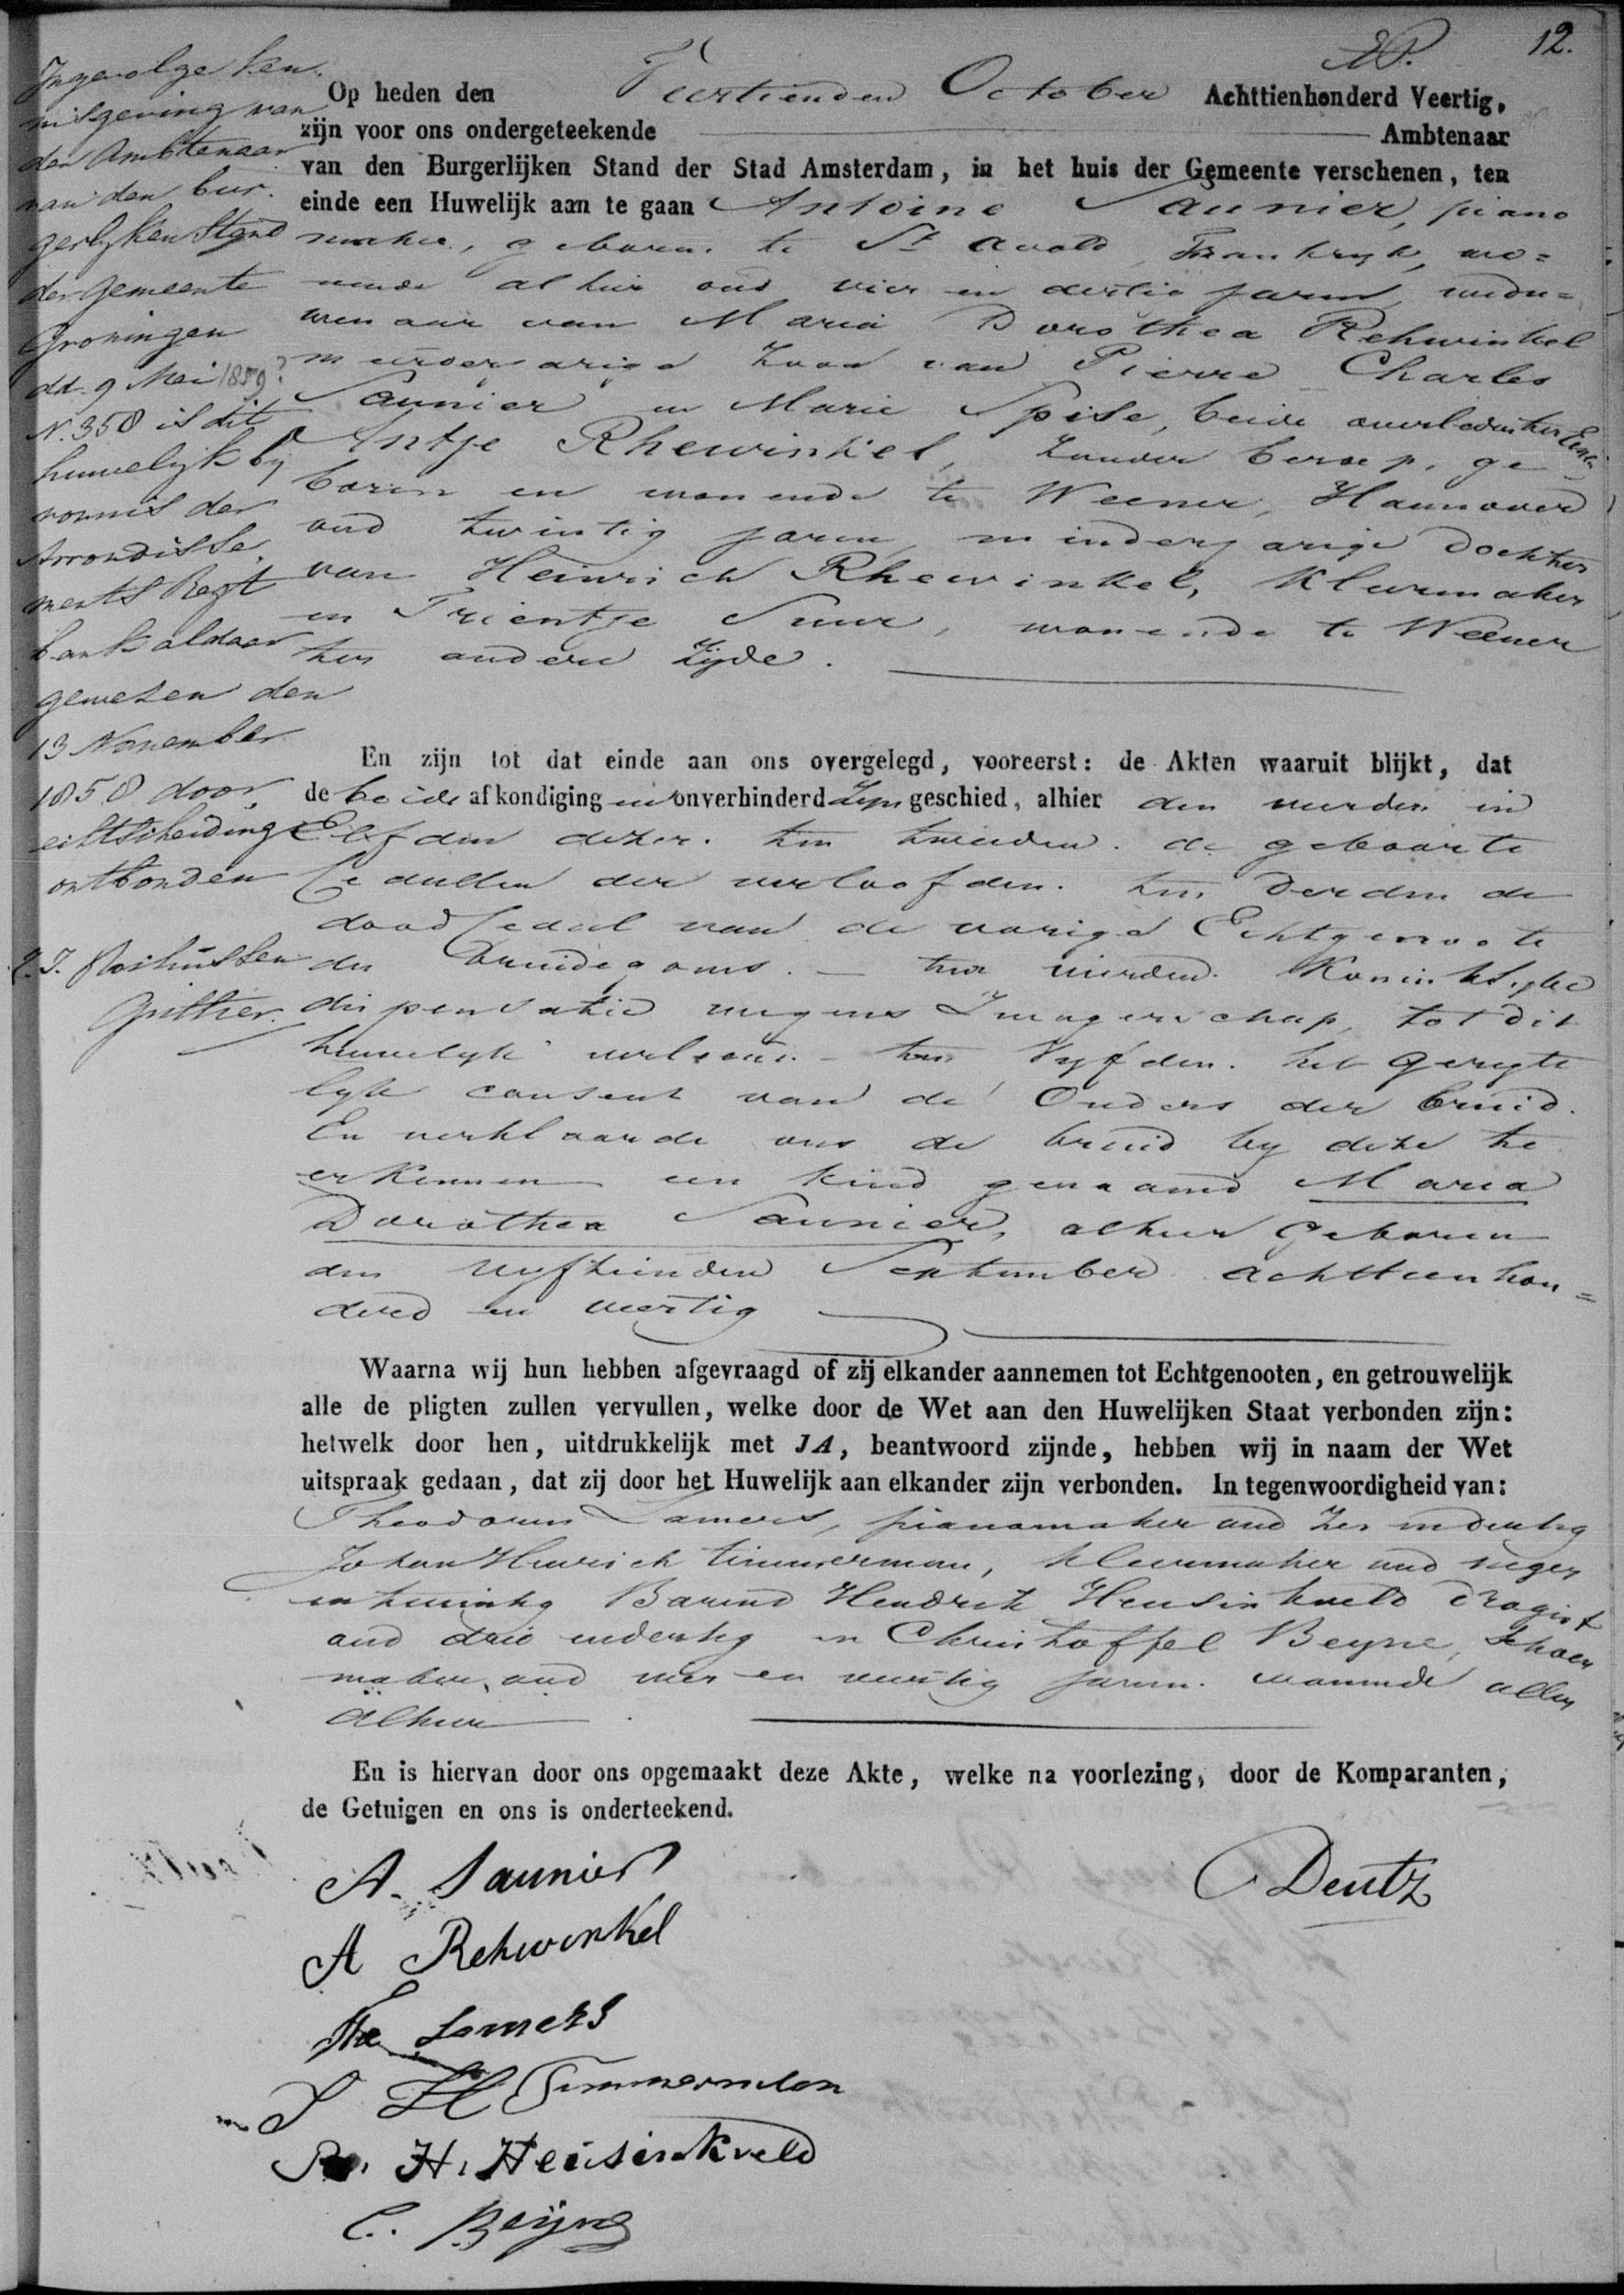 12.
Op heden den Veertienden October Achttienhonderd Veertig,
zijn voor ons ondergeteekende Ambtenaar
van den Burgerlijken Stand der Stad Amsterdam, in het huis der Gemeente verschenen, ten
einde een Huwelijk aan te gaan Antoine Saunier, piano
maker, geboren te St Avold, Frankryk, wo=
nende alhier oud vier en dertig jaren, wedu=
wenaar van Maria Dorothea Rehwinkel
meerderjarige Zoon van Pierre Charles
Saunier en Marie Spise, beide overleden ter Eener
Antje Rhewinkel, Zonder beroep, ge
boren en wonende te Weener, Hannover
oud twintig jaren, minderjarige Dochter
van Heinrich Rhewinkel, Kleermaker
en Trientje Suur, wonende te Weener
ter andere Zyde.
En zijn tot dat einde aan ons overgelegd, vooreerst: de Akten waaruit blijkt, dat
de beide afkondigingen onverhinderd Zyn geschied, alhier den vierden en
Elfden dezer. ten tweeden. de geboorte
Cedullen der verloofden. ten Derden de
dood Cedul van de vorige Echtgenoote
des Bruidegoms. — ten vierden. Koninklyke
dispensatie wegens Zwagerschap, tot dit
huwelyk verleend. — ten Vyfden. het geregte
lyk consent van de Ouders der bruid.
En verklaarde ons de bruid by deze te
erkennen een kind genaamd Maria
Dorothea Saunier, alhier geboren
den vyftienden September achttienhon=
derd en veertig
Waarna wij hun hebben afgevraagd of zij elkander aannemen tot Echtgenooten, en getrouwelijk
alle de pligten zullen vervullen, welke door de Wet aan den Huwelijken Staat verbonden zijn:
hetwelk door hen, uitdrukkelijk met JA, beantwoord zijnde, hebben wij in naam der Wet
uitspraak gedaan, dat zij door het Huwelijk aan elkander zijn verbonden. In tegenwoordigheid van:
Theodorus Lamers, pianomaker oud Zes en dertig
Johan Hinrich Timmerman, Kleermaker oud negen
en twintig Barend Hendrik Heusinkveld Drogist
oud drie en dertig en Christoffel Beyne, Schoen
maker, oud vier en veertig jaren. wonende allen
Alhier
En is hiervan door ons opgemaakt deze Akte, welke na voorlezing, door de Komparanten,
de Getuigen en ons is onderteekend.
A. Saunier
Deutz
A Rehwinkel
The Lamers
J H Timmerman
B. H. Heusinkveld
C. Beijne
Ingevolge ken.
nisgeving van
den Ambtenaar
van den bur.
gerlyken Stand
der Gemeente
Groningen
dd. 9 Mei 1859?
N. 358 is dit
huwelyk by
vonnis der
Arrondisse.
ments Regt
bank aldaar
gewezen den
13 November
1858 door
echtscheiding
ontbonden
Griffier.